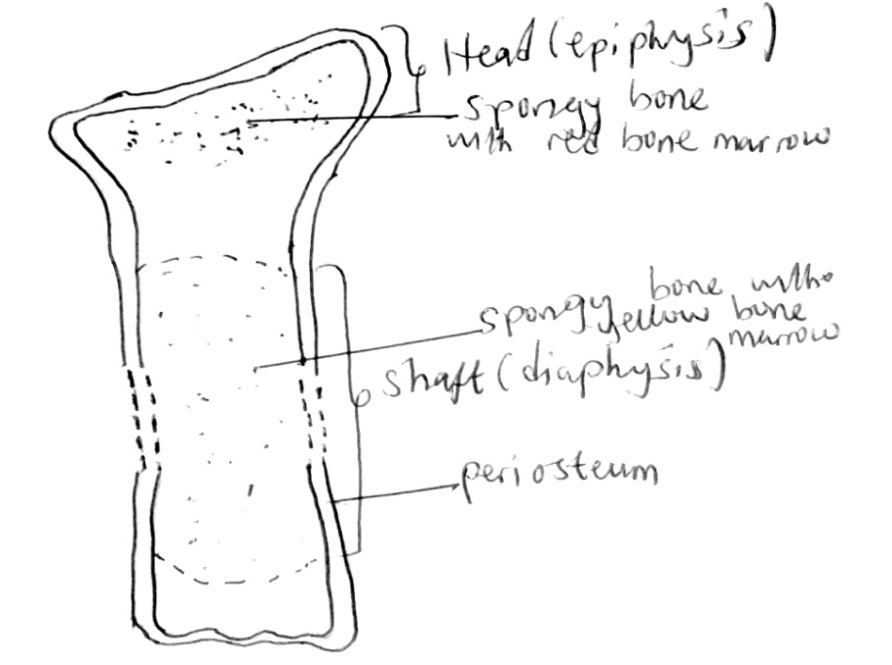 Head (epiphysis)
spongy bone
with red bone marrow
spongy bone with
yellow bone
marrow
shaft (diaphysis)
periosteum